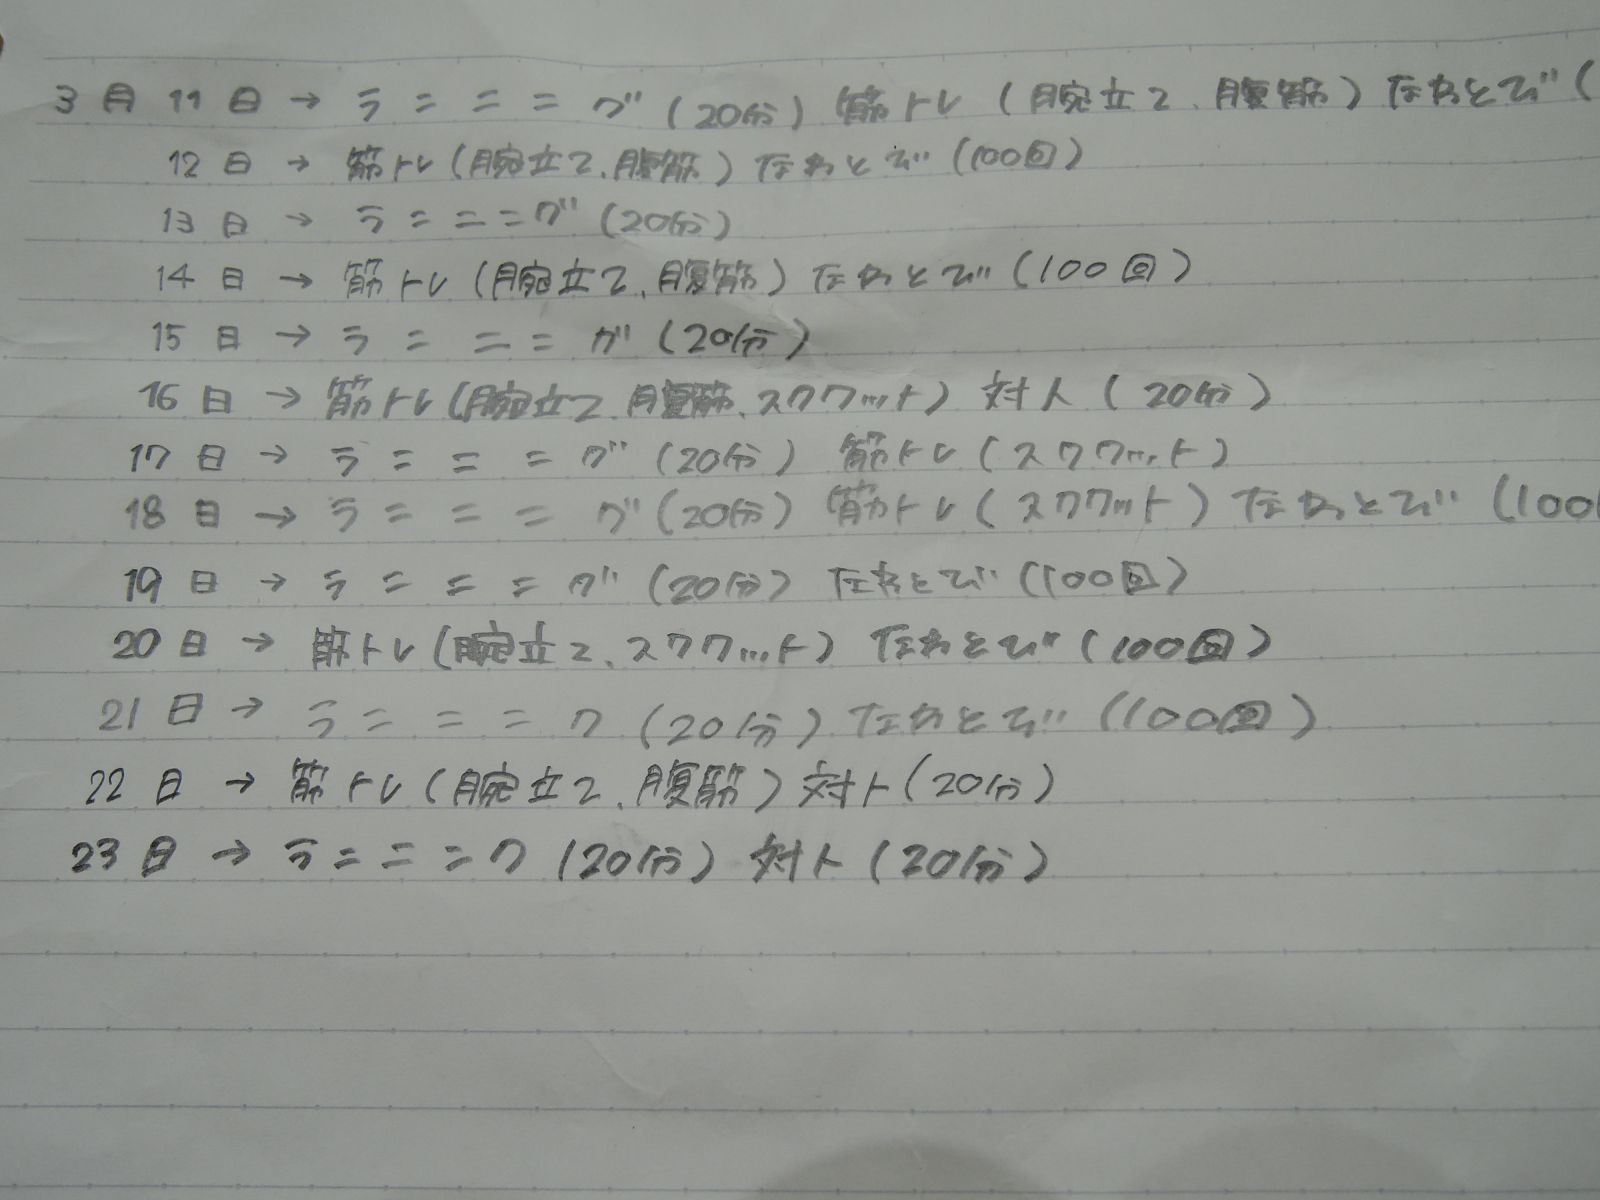 3月11日→ランニング(20分)筋トレ(腕立て、腹筋)なわとび(
12日→筋トレ(腕立て、腹筋)なわとび(100回)
13日→ランニング(20分)
14日→筋トレ(腕立て、腹筋)なわとび(100回)
15日→ランニング(20分)
16日→筋トレ(腕立て、腹筋、スクワット)対人(20分)
17日→ランニング(20分)筋トレ(スクワット)
18日→ランニング(20分)筋トレ(スクワット)なわとび(100
19日→ランニング(20分)なわとび(100回)
20日→筋トレ(腕立て、スクワット)なわとび(100回)
21日→ランニンク(20分)なわとび(100回)
22日→筋トレ(腕立て、腹筋)対人(20分)
23日→ランニンク(20分)対人(20分)